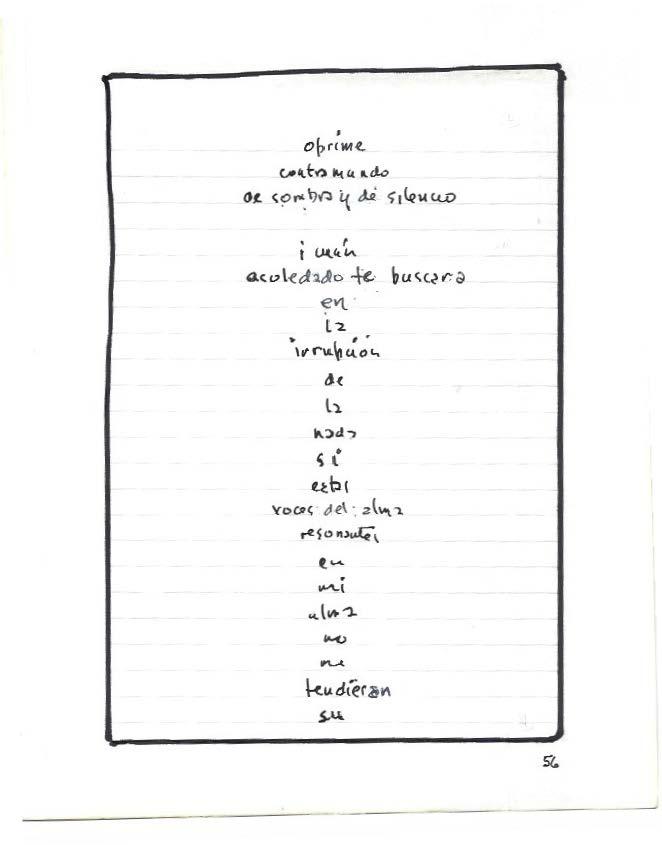 oprime
contramundo
de sombra y de silencio
imán
acoledado te buscara
en
la
irrupción
de
la
nada
si
estas
voces del alma
resonantes
en
mi
alma
no
me
tendieran
su
56